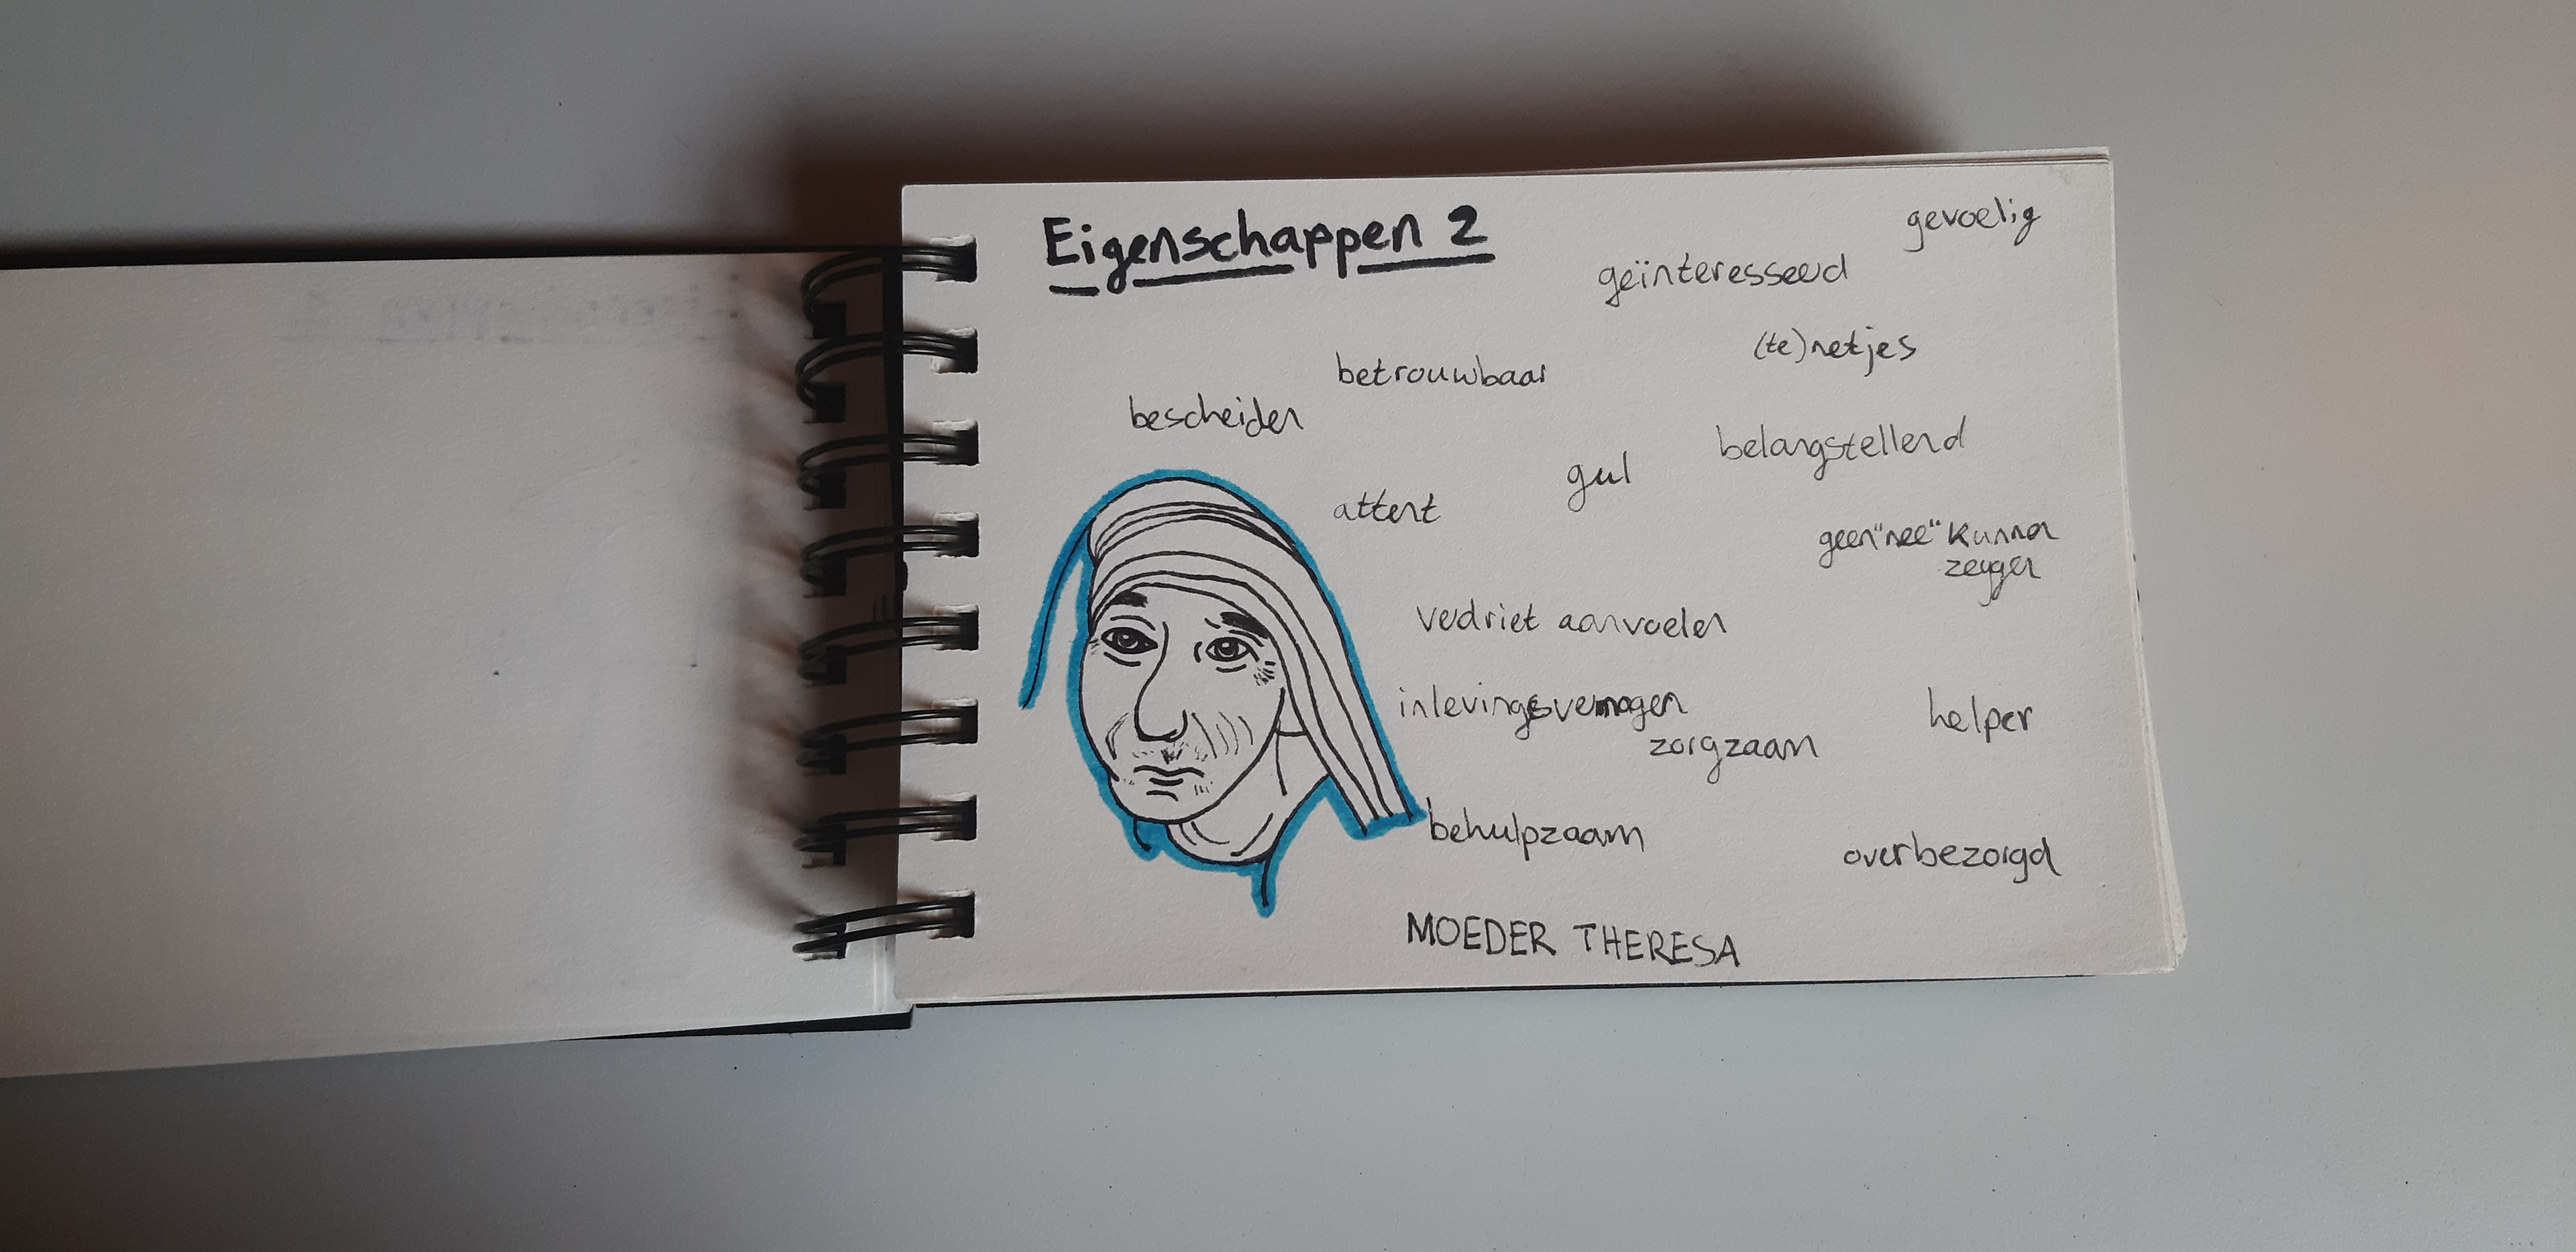 Eigenschappen 2
gevoelig
geïnteresseerd
(te) netjes
betrouwbaar
bescheiden
belangstellend
gul
attent
geen "nee" kunnen
zeggen
verdriet aanvoelen
inlevingsvermogen
helper
zorgzaam
behulpzaam
overbezorgd
MOEDER THERESA